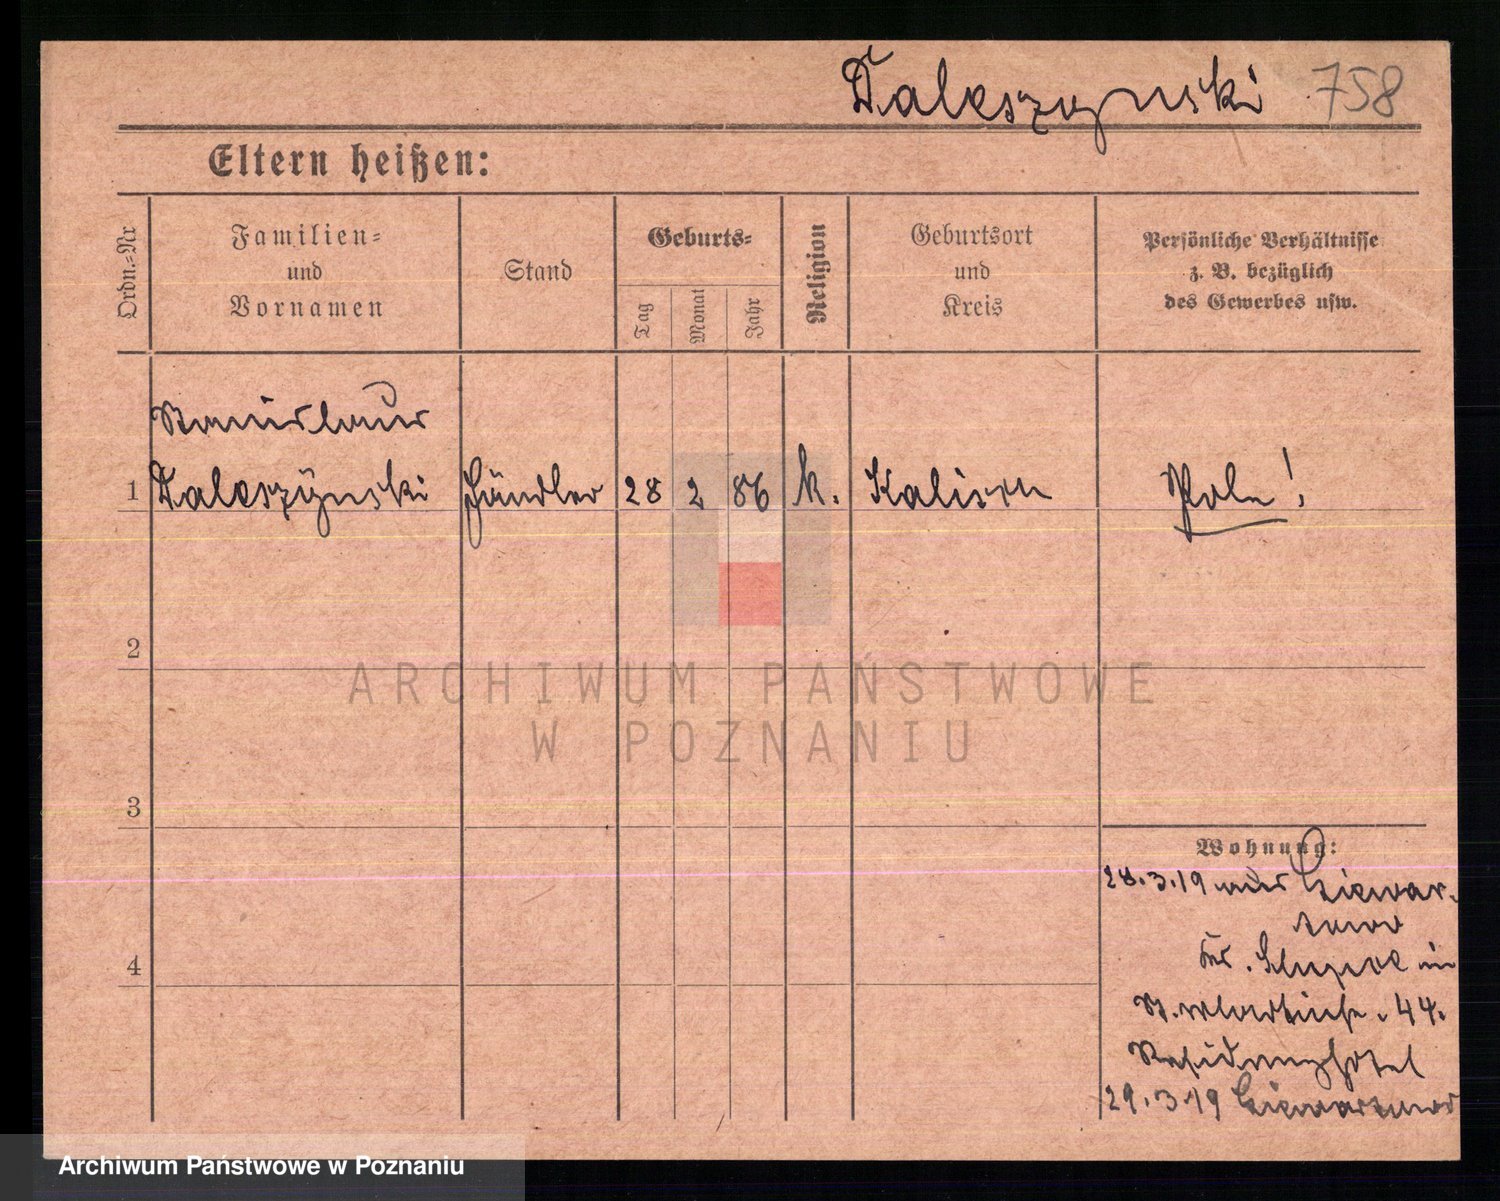 Daleszynski 758
Eltern heißen:
Ordn.-Nr
Familien-
und
Vornamen
Stand
Geburts-
Tag
Monat
Jahr
Religion
Geburtsort
und
Kreis
Persönliche Verhältnisse
z. B. bezüglich
des Gewerbes usw.
Stanislaus
1 Daleszÿnski Händler 28 2 86 k. Kalisch Pole!
2
3
4
Wohnung:
28.3.19 aus
in
St. Martinstr. 44.
Residenzhotel
29.3.19
ARCHIWUM PAŃSTWOWE
W POZNANIU
Archiwum Państwowe w Poznaniu